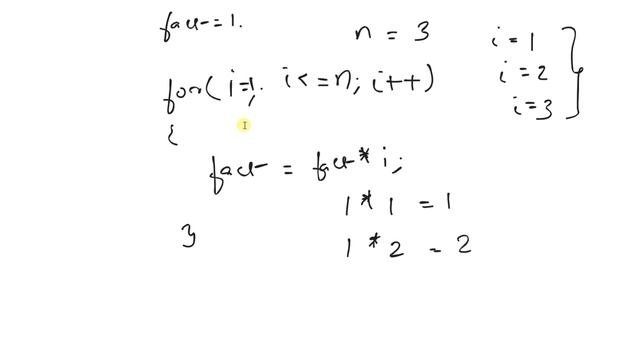 fact = 1.
n = 3
i = 1
for(i=1; i<=n; i++)
i = 2
i=3
{
fact = fact * i;
1 * 1 = 1
}
1 * 2 = 2